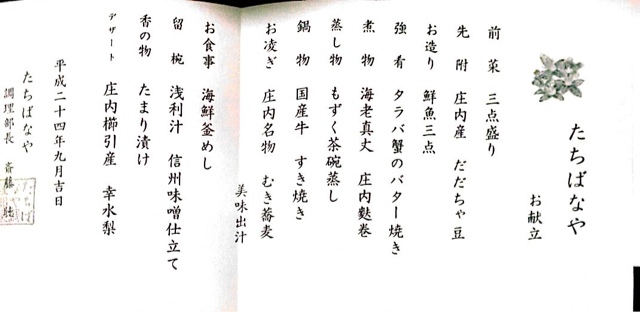 たちばなや
お献立
前菜 三点盛り
先附 庄内産 だだちゃ豆
お造り 鮮魚三点
強肴 タラバ蟹のバター焼き
煮物 海老真丈 庄内麩巻
蒸し物 もずく茶碗蒸し
鍋物 国産牛 すき焼き
お凌ぎ 庄内名物 むき蕎麦
美味出汁
お食事 海鮮釜めし
留椀 浅利汁 信州味噌仕立て
香の物 たまり漬け
デザート 庄内櫛引産 幸水梨
平成二十四年九月吉日
たちばなや
調理部長 斎藤